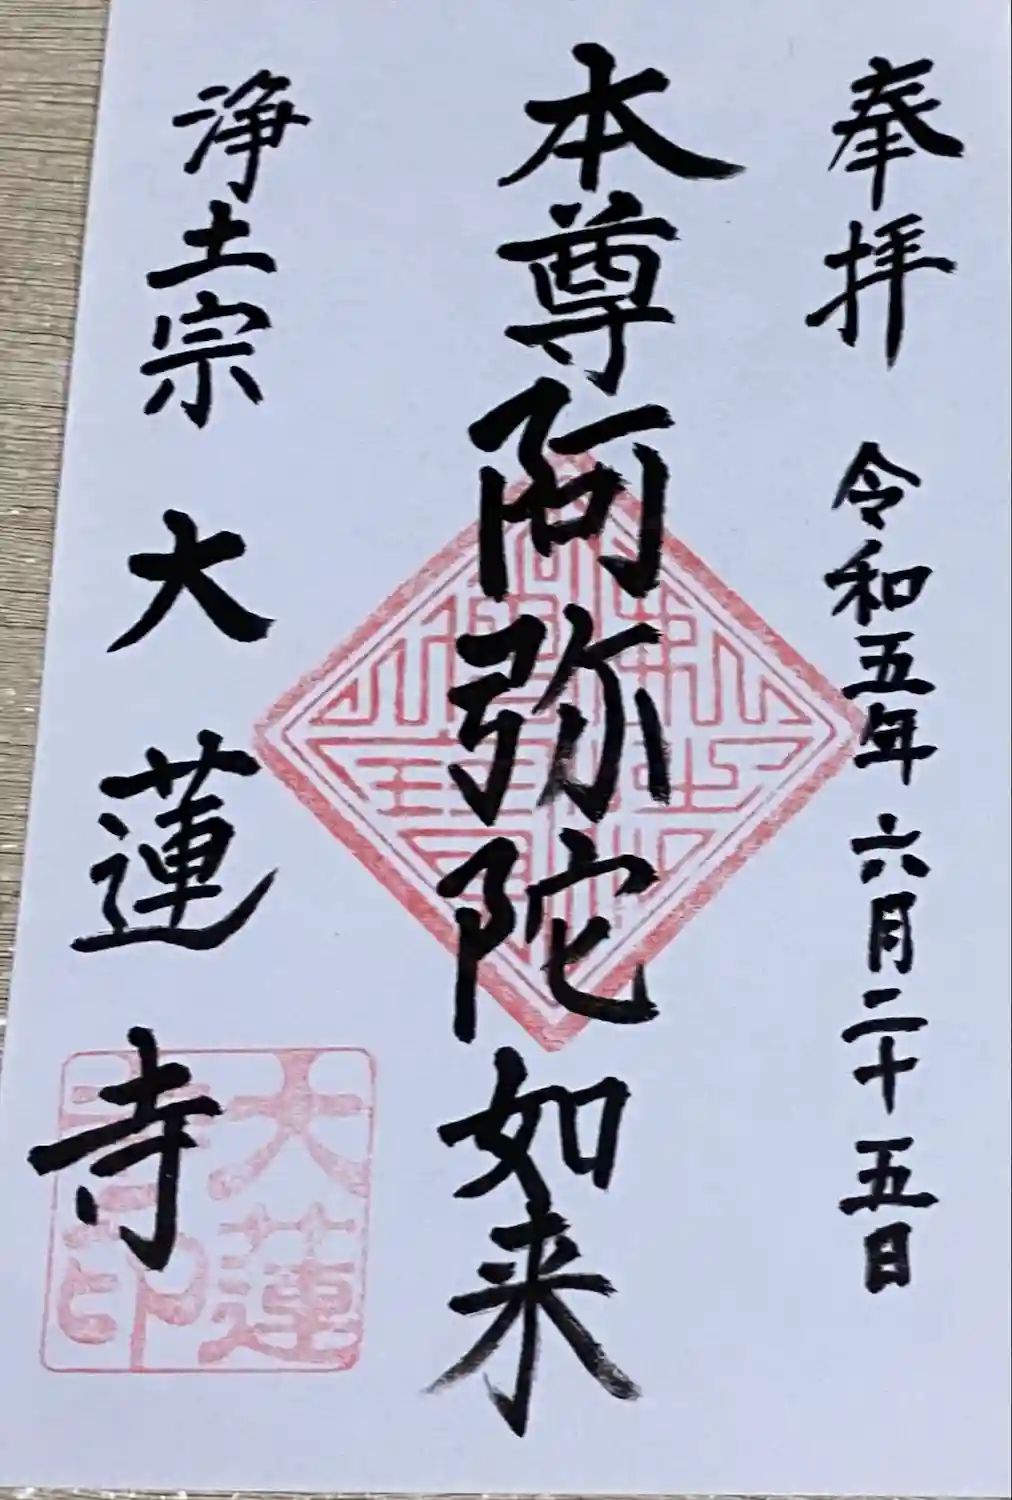 奉拝 令和五年 六月二十五日
本尊阿弥陀如来
浄土宗 大蓮寺
大蓮寺印